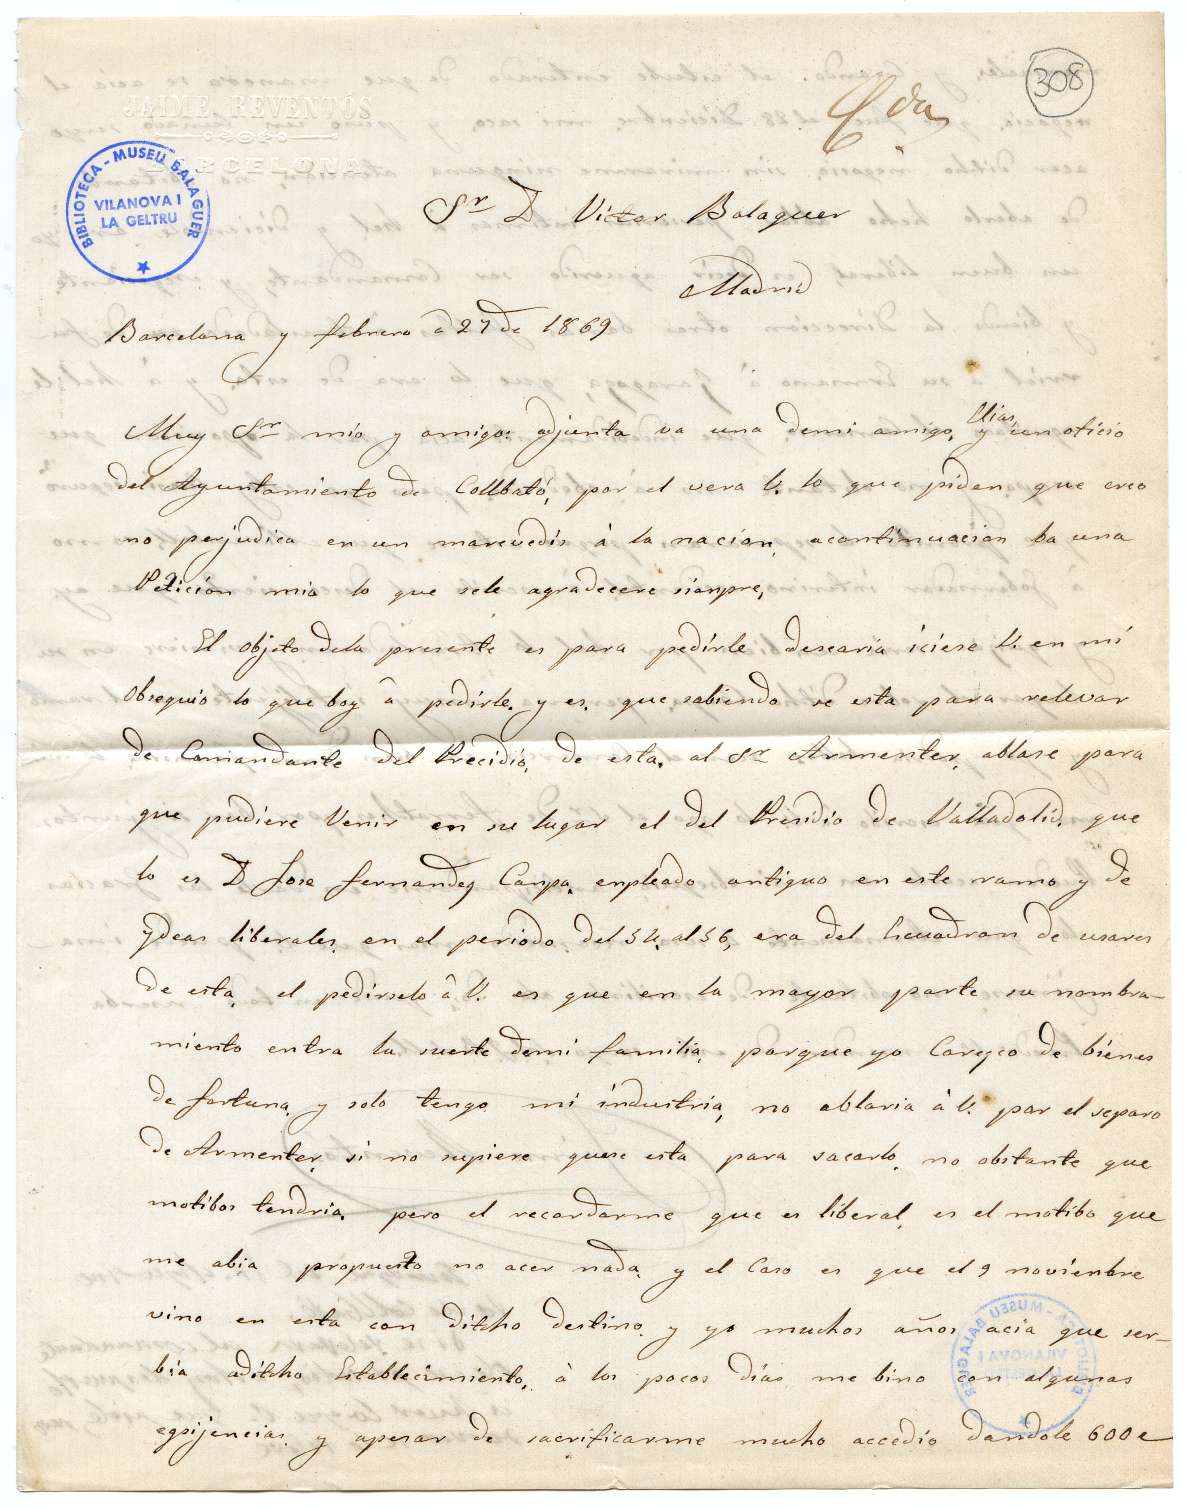 308
JAIME REVENTOS
BARCELONA
BIBLIOTECA - MUSEU BALAGUER
VILANOVA I
LA GELTRU
Sr D Victor Balaguer
Madrid
Barcelona y febrero â 27 de 1869
Muy Sr mio y amigo: adjunta va una demi amigo, Elias, y un oficio
del Ayuntamiento de Collbató, por el vera V. lo que piden que creo
no perjudica en un marevedis à la nacion, acontinuacion ba una
Peticion mia lo que sele agradecere sienpre,
El objeto dela presente es para pedirle desearia iciese V. en mi
obsequio lo que boy â pedirle, y es, que sabiendo se esta para relevar
de Comandante del Precidio, de esta, al Sr Armenter, ablase para
que pudiere Venir en su lugar el del Presidio de Valladolid, que
lo es D Jose Fernandez Canpa, enpleado antiguo en este ramo y de
ydeas liberales, en el periodo del 54, al 56, era del Escuadron de usares
de esta, el pedirselo â V. es que en la mayor parte su nombra-
miento entra la suerte demi familia, porque yo Carezco de bienes
de fortuna, y solo tengo mi industria, no ablaria à V. por el separo
de Armenter, si no supiere quese esta para sacarlo, no obstante que
motibos tendria, pero el recordarme que es liberal, es el motibo que
me abia propuesto no acer nada, y el Caso es que el 9 novienbre
vino en esta con ditcho destino, y yo muchos años acia que ser-
bia aditcho Establecimiento, à los pocos dias me bino con algunas
egsijencias, y apesar de sacrificarme mucho accedio dandole 600 e